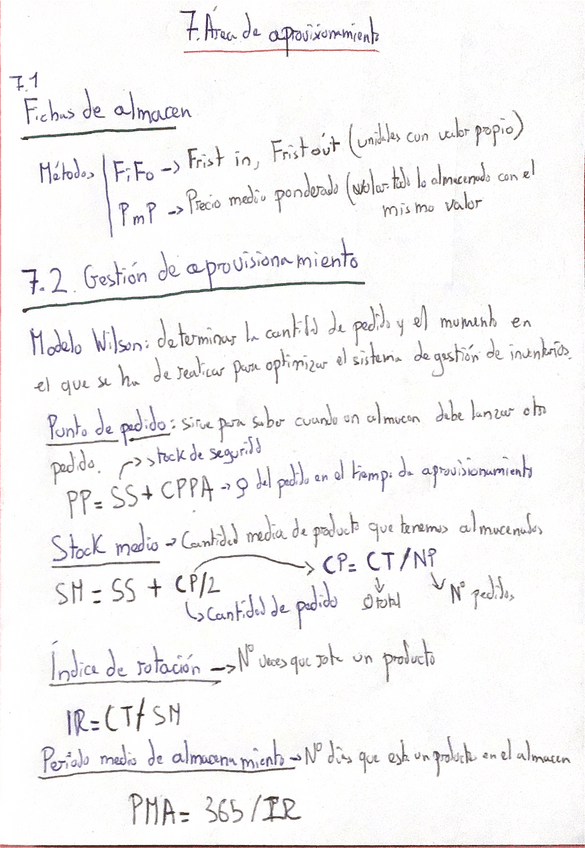 7. Área de aprovisionamiento
7.1
Fichas de almacen
Métodos FiFo -> Frist in, Frist out (unidades con valor propio)
PmP -> Precio medio ponderado (valorar todo lo almacenado con el
mismo valor
7.2. Gestión de aprovisionamiento
Modelo Wilson: determinar la cantidad de pedido y el momento en
el que se ha de realizar para optimizar el sistema de gestión de inventarios.
Punto de pedido: sirve para saber cuando un almacen debe lanzar otro
pedido.
-> stock de seguridad
PP = SS + CPPA -> Q del pedido en el tiempo de aprovisionamiento
Stock medio -> Cantidad media de producto que tenemos almacenados
SM = SS + CP/2 -> CP = CT/NP
Cantidad de pedido Q total Nº pedidos
Índice de rotación -> Nº veces que rote un producto
IR = CT/SM
Periodo medio de almacenamiento -> Nº días que está un producto en el almacen
PMA = 365/IR